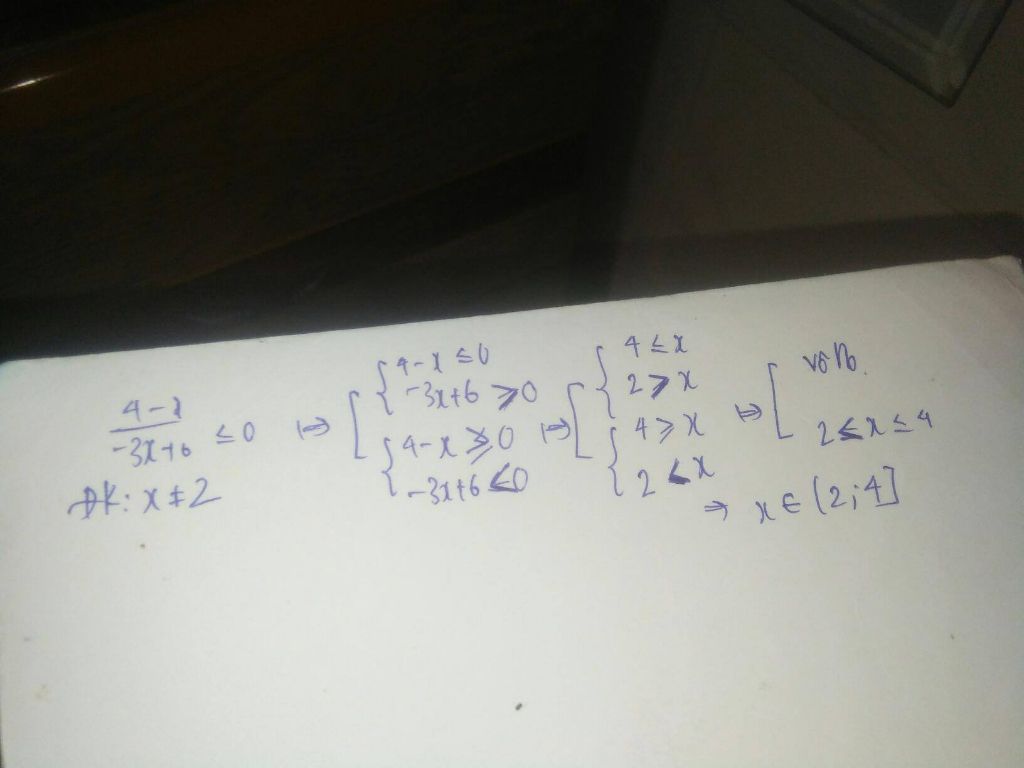 (4-x)/(-3x+6) ≤ 0 ⇔ [ { 4-x ≤ 0 ; -3x+6 > 0 ; { 4-x ≥ 0 ; -3x+6 < 0 ⇔ [ { 4 ≤ x ; 2 > x ; { 4 ≥ x ; 2 < x ⇔ [ vô n0. ; 2 < x ≤ 4
ĐK: x ≠ 2
⇒ x ∈ (2;4]